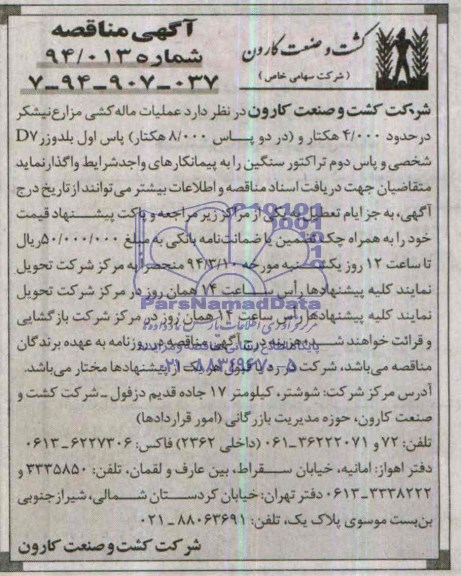 آگهی مناقصه
شماره ۹۴/۰۱۳
۷-۹۴-۹۰۷-۰۳۷
کشت و صنعت کارون
(شرکت سهامی خاص)
شرکت کشت و صنعت کارون در نظر دارد عملیات ماله کشی مزارع نیشکر
درحدود ۴/۰۰۰ هکتار و (در دو پاس ۸/۰۰۰ هکتار) پاس اول بلدوزر D۷
شخصی و پاس دوم تراکتور سنگین را به پیمانکارهای واجدشرایط واگذار نماید
متقاضیان جهت دریافت اسناد مناقصه و اطلاعات بیشتر می‌توانند از تاریخ درج
آگهی، به جز ایام تعطیل به یکی از مراکز زیر مراجعه و پاکت پیشنهاد قیمت
خود را به همراه چک تضمین یا ضمانت‌نامه بانکی به مبلغ ۵۰/۰۰۰/۰۰۰ ریال
تا ساعت ۱۲ روز یکشنبه مورخه ۹۴/۳/۱۰ منحصراً به مرکز شرکت تحویل
نمایند کلیه پیشنهادها رأس ساعت ۱۴ همان روز در مرکز شرکت تحویل
نمایند کلیه پیشنهادها رأس ساعت ۱۴ همان روز در مرکز شرکت بازگشایی
و قرائت خواهند شد. هزینه درج آگهی مناقصه در روزنامه به عهده برندگان
مناقصه می‌باشد، شرکت در رد یا قبول هر یک از پیشنهادها مختار می‌باشد.
آدرس مرکز شرکت: شوشتر، کیلومتر ۱۷ جاده قدیم دزفول ـ شرکت کشت و
صنعت کارون، حوزه مدیریت بازرگانی (امور قراردادها)
تلفن: ۷۲ و ۳۶۲۲۲۰۷۱-۰۶۱ (داخلی ۲۳۶۲) فاکس: ۶۲۲۷۳۰۶-۰۶۱۳
دفتر اهواز: امانیه، خیابان سقراط، بین عارف و لقمان، تلفن: ۳۳۳۵۸۵۰ و
۳۳۳۸۲۲۲-۰۶۱۳ دفتر تهران: خیابان کردستان شمالی، شیراز جنوبی
بن‌بست موسوی پلاک یک، تلفن: ۸۸۰۶۳۶۹۱-۰۲۱
شرکت کشت و صنعت کارون
ParsNamadData
۰۲۱-۸۸۳۴۹۶۷۰-۵